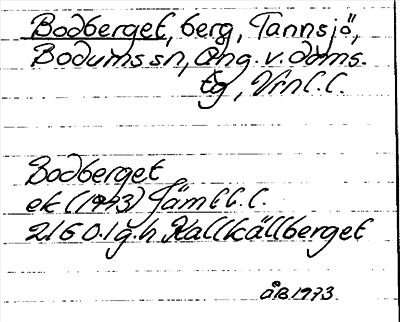 Bodberget, berg, Tannsjö,
Bodums sn, Ång. v. doms.
tg, Vrnl. l.
Bodberget
ek (1943) Jämtl. l.
21G 0.1 g.h Kallkällberget
ÅB 1973